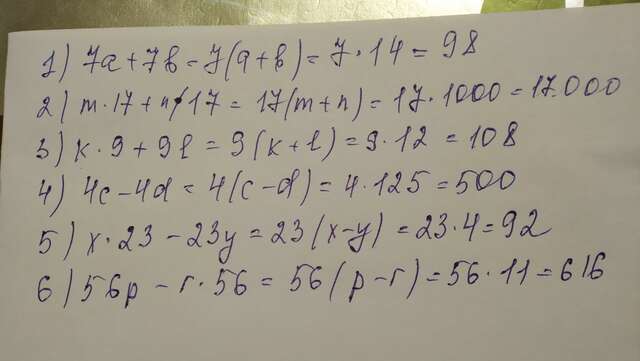 1) 7a + 7b = 7(a + b) = 7 · 14 = 98
2) m · 17 + n · 17 = 17(m + n) = 17 · 1000 = 17.000
3) k · 9 + 9l = 9(k + l) = 9 · 12 = 108
4) 4c - 4d = 4(c - d) = 4 · 125 = 500
5) x · 23 - 23y = 23(x - y) = 23 · 4 = 92
6) 56p - r · 56 = 56(p - r) = 56 · 11 = 616